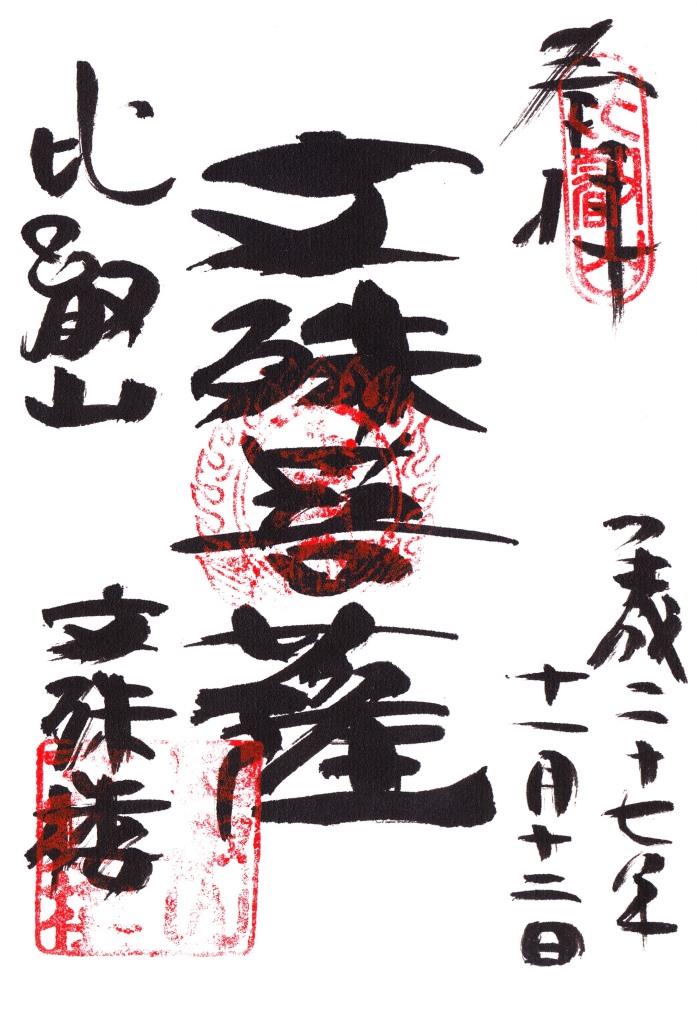 奉拝
平成二十七年
十一月十二日
文殊菩薩
比叡山
文殊楼
比叡山